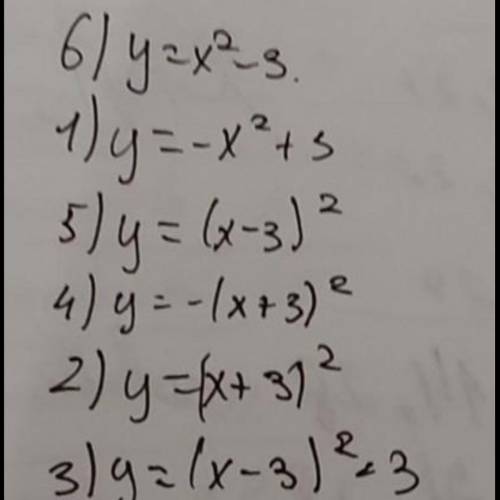 6) y = x² - 3.
1) y = -x² + 3
5) y = (x-3)²
4) y = -(x+3)²
2) y = (x+3)²
3) y = (x-3)² + 3